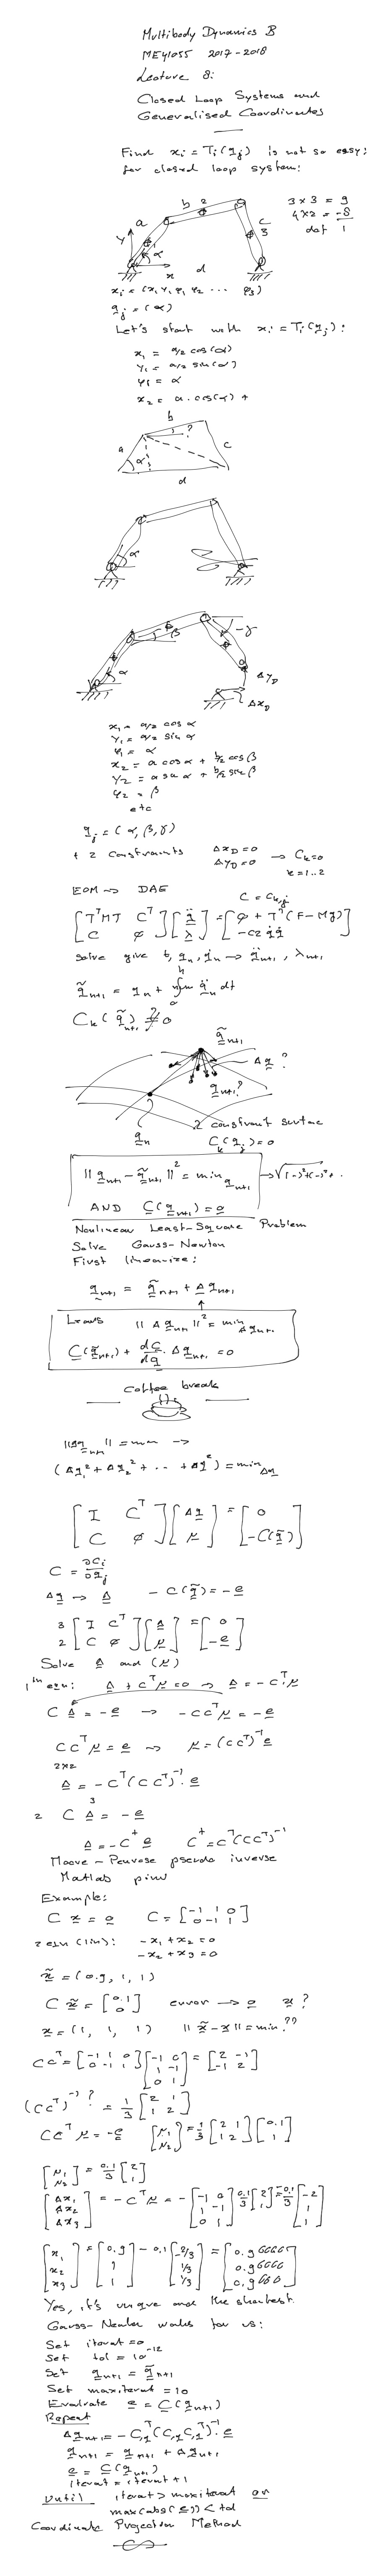 Multibody Dynamics B
ME41055 2017-2018
Lecture 8:
Closed Loop Systems and
Generalised Coordinates
Find xi = Ti(qj) is not so easy;
for closed loop system:
b 2
a
c
3
Y
α
x
d
3 x 3 = 9
4x2 = -8
dof 1
xi = (x1 y1 φ1 x2 ... φ3)
qj = (α)
Let's start with xi = Ti(qj):
x1 = a/2 cos(α)
y1 = a/2 sin(α)
φ1 = α
x2 = a·cos(α) +
b
?
a
α
c
d
α
β
-γ
α
ΔyD
ΔxD
x1 = a/2 cos α
y1 = a/2 sin α
φ1 = α
x2 = a cos α + b/2 cos β
y2 = a sin α + b/2 sin β
φ2 = β
etc
qj = (α, β, γ)
+ 2 constraints ΔxD=0
ΔyD=0 → Ck=0
k=1..2
EOM → DAE
C = Ck,j
[TᵀMT Cᵀ; C φ][q̈; λ] = [φ + Tᵀ(F-Mg); -C2 q̇q̇]
solve give t, qn, q̇n → q̈n+1, λn+1
q̃n+1 = qn + ∫ q̇n dt
Ck(q̃n+1) ≠ 0
?
q̃n+1
Δq ?
qn+1?
qn
2 constraint surface
Ck(qj) = 0
|| qn+1 - q̃n+1 ||² = min qn+1 → √(-)²+(-)²+..
AND C(qn+1) = 0
Nonlinear Least-Square Problem
Solve Gauss-Newton
First linearize:
qn+1 = q̃n+1 + Δqn+1
|| Δqn+1 ||² = min Δqn+1
C(q̃n+1) + dC/dq · Δqn+1 = 0
coffee break
||Δqn+1|| = min →
(Δq1² + Δq2² + ·· + Δq²) = min Δq
[I Cᵀ; C φ][Δq; μ] = [0; -C(q̃)]
C = ∂Ci/∂qj
Δq → Δ - C(q̃) = -e
3 2 [I Cᵀ; C φ][Δ; μ] = [0; -e]
Solve Δ and (μ)
1th eqn: Δ + Cᵀμ = 0 → Δ = -Cᵀμ
C Δ = -e → -CCᵀμ = -e
CCᵀμ = e → μ = (CCᵀ)⁻¹e
2x2
Δ = -Cᵀ(CCᵀ)⁻¹·e
3
2 C Δ = -e
Δ = -C⁺e C⁺=Cᵀ(CCᵀ)⁻¹
Moore-Penrose pseudo inverse
Matlab pinv
Example:
C x = 0 C = [-1 1 0; 0 -1 1]
2 eqn (lin): -x1 + x2 = 0
-x2 + x3 = 0
x̃ = (0.9, 1, 1)
C x̃ = [0.1; 0] error → 0 x ?
x = (1, 1, 1) || x̃ - x || = min ??
CCᵀ = [-1 1 0; 0 -1 1][-1 0; 1 -1; 0 1] = [2 -1; -1 2]
(CCᵀ)⁻¹ ? = 1/3 [2 1; 1 2]
CCᵀμ = -e [μ1; μ2] = 1/3 [2 1; 1 2][0.1; 1]
[μ1; μ2] = 0.1/3 [2; 1]
[Δx1; Δx2; Δx3] = -Cᵀμ = -[-1 0; 1 -1; 0 1] 0.1/3 [2; 1] = -0.1/3 [-2; 1; 1]
[x1; x2; x3] = [0.9; 1; 1] - 0.1 [-2/3; 1/3; 1/3] = [0.96666; 0.9666; 0.9666]
Yes, it's unique and the shortest.
Gauss-Newton works for us:
Set iterat = 0
Set tol = 10⁻¹²
Set qn+1 = q̃n+1
Set maxiterat = 10
Evaluate e = C(qn+1)
Repeat
Δqn+1 = -C,qᵀ(C,q C,qᵀ)⁻¹·e
qn+1 = qn+1 + Δqn+1
e = C(qn+1)
iterat = iterat + 1
Until iterat > maxiterat or
max(abs(e)) < tol
Coordinate Projection Method